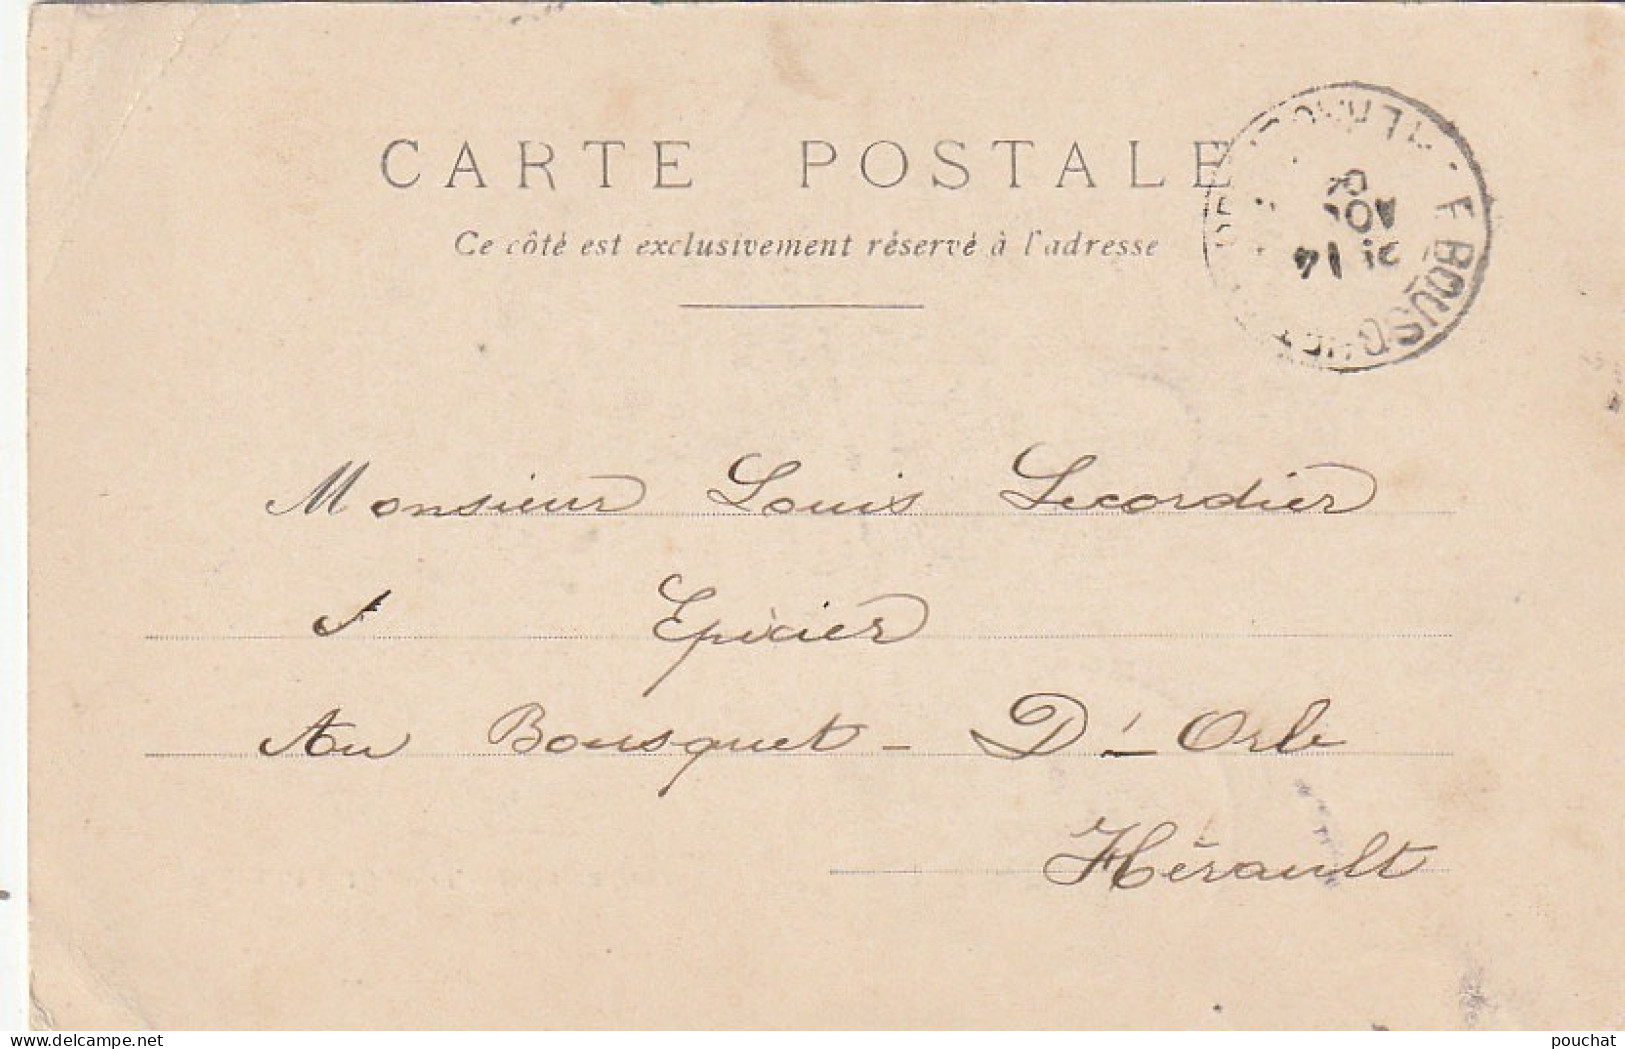 CARTE POSTALE
Ce côté est exclusivement réservé à l'adresse
BOUSQ
Monsieur Louis Lecordier
Epicier
Au Bousquet - D'-Orb
Hérault
www.delcampe.net
pouchat